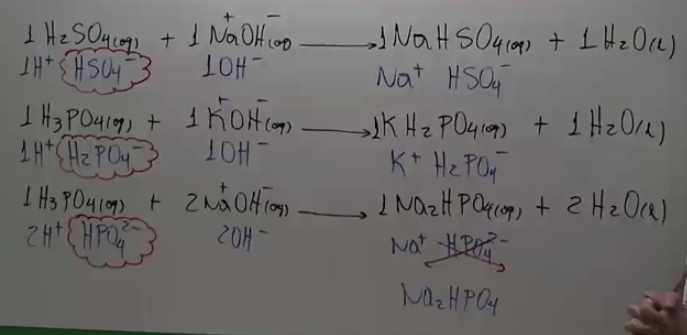 1 H₂SO₄(aq) + 1 Na⁺OH⁻(aq) → 1 NaHSO₄(aq) + 1 H₂O(l)
1H⁺ HSO₄⁻ 1OH⁻ Na⁺ HSO₄⁻
1 H₃PO₄(aq) + 1 K⁺OH⁻(aq) → 1 KH₂PO₄(aq) + 1 H₂O(l)
1H⁺ H₂PO₄⁻ 1OH⁻ K⁺ H₂PO₄⁻
1 H₃PO₄(aq) + 2 Na⁺OH⁻(aq) → 1 Na₂HPO₄(aq) + 2 H₂O(l)
2H⁺ HPO₄²⁻ 2OH⁻ Na⁺ HPO₄²⁻
Na₂HPO₄